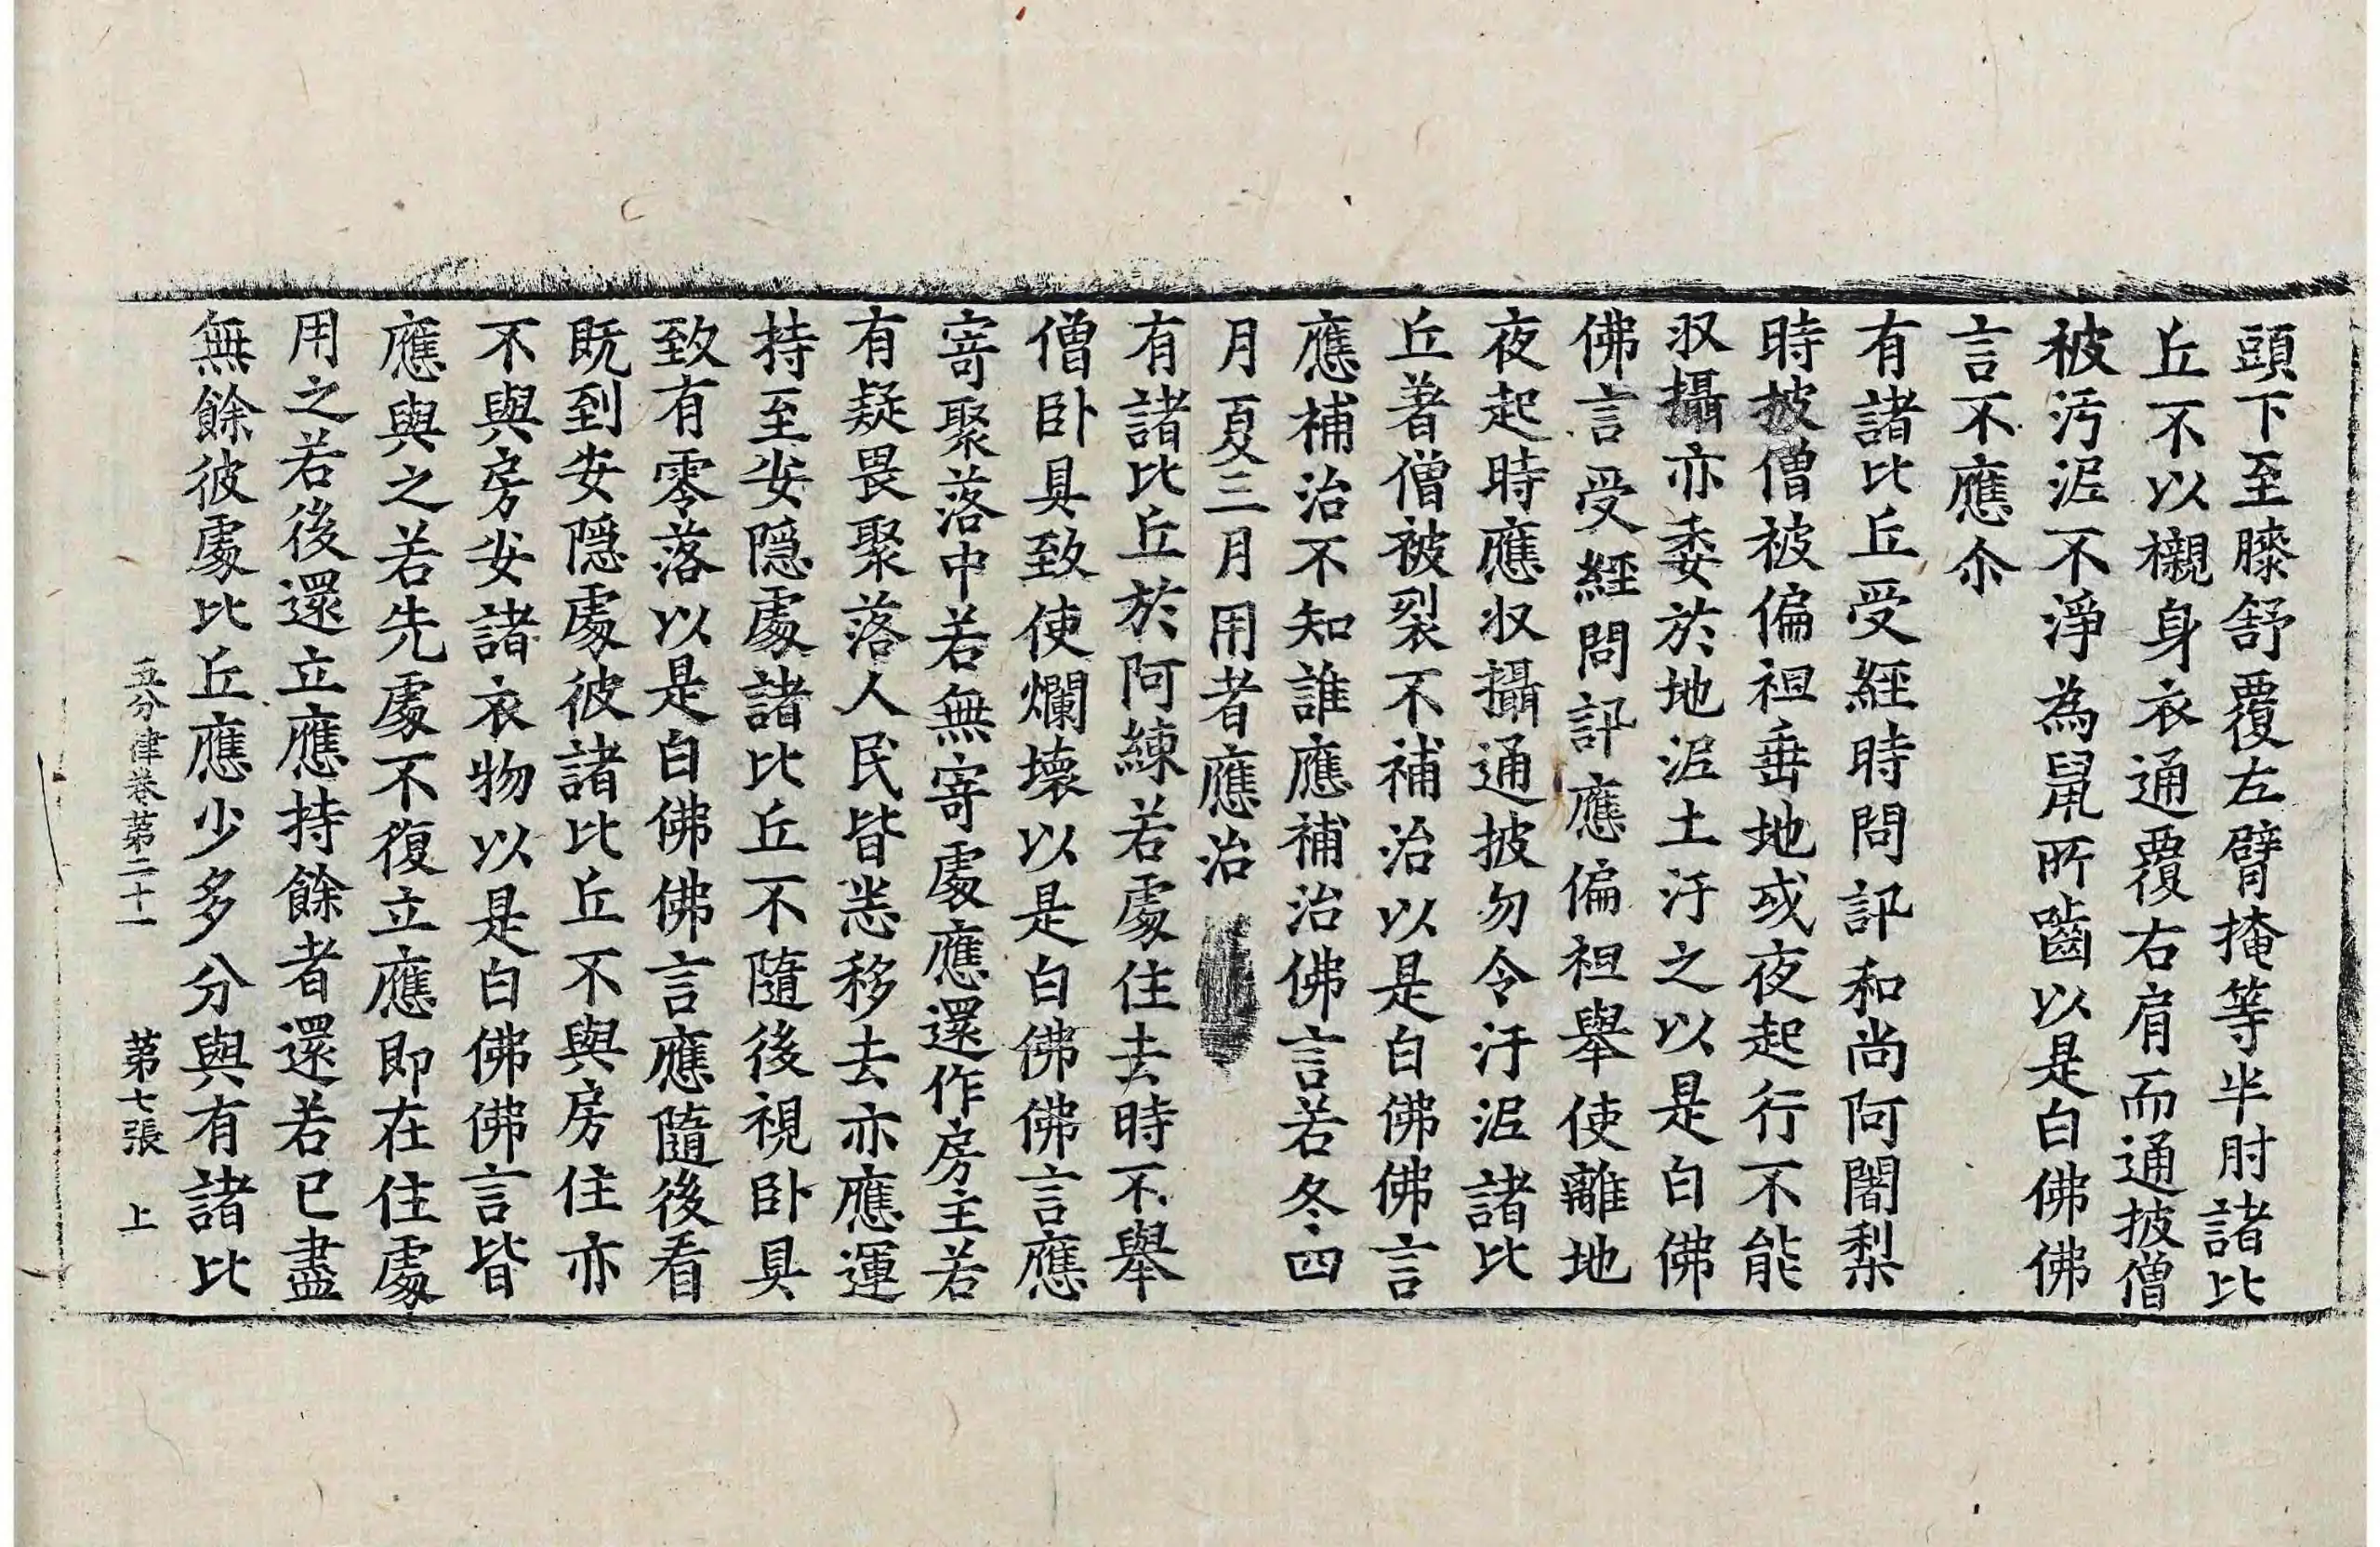 頭下至膝舒覆左臂掩等半肘諸比
丘不以襯身衣通覆右肩而通披僧
被汚泥不淨為鼠所嚙以是白佛佛
言不應尒
有諸比丘受經時問訊和尚阿闍梨
時披僧被偏袒垂地或夜起行不能
収攝亦委於地泥土汙之以是白佛
佛言受經問訊應偏袒舉使離地
夜起時應収攝通披勿令汙泥諸比
丘著僧被裂不補治以是白佛佛言
應補治不知誰應補治佛言若冬四
月夏三月用者應治
有諸比丘於阿練若處住去時不舉
僧卧具致使爛壞以是白佛佛言應
寄聚落中若無寄處應還作房主若
有疑畏聚落人民皆悉移去亦應運
持至安隱處諸比丘不隨後視卧具
致有零落以是白佛佛言應隨後看
既到安隱處彼諸比丘不與房住亦
不與房安諸衣物以是白佛佛言皆
應與之若先處不復立應即在住處
用之若後還立應持餘者還若已盡
無餘彼處比丘應少多分與有諸比
五分律卷第二十一 第七張 上